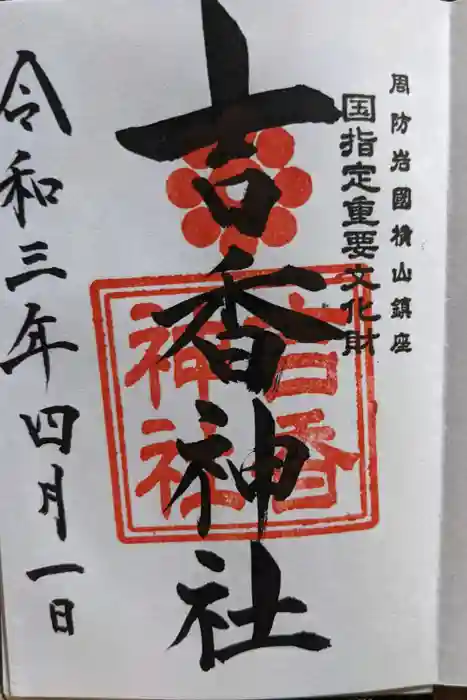 周防岩國横山鎮座
国指定重要文化財
吉香神社
吉香
神社
令和三年四月一日